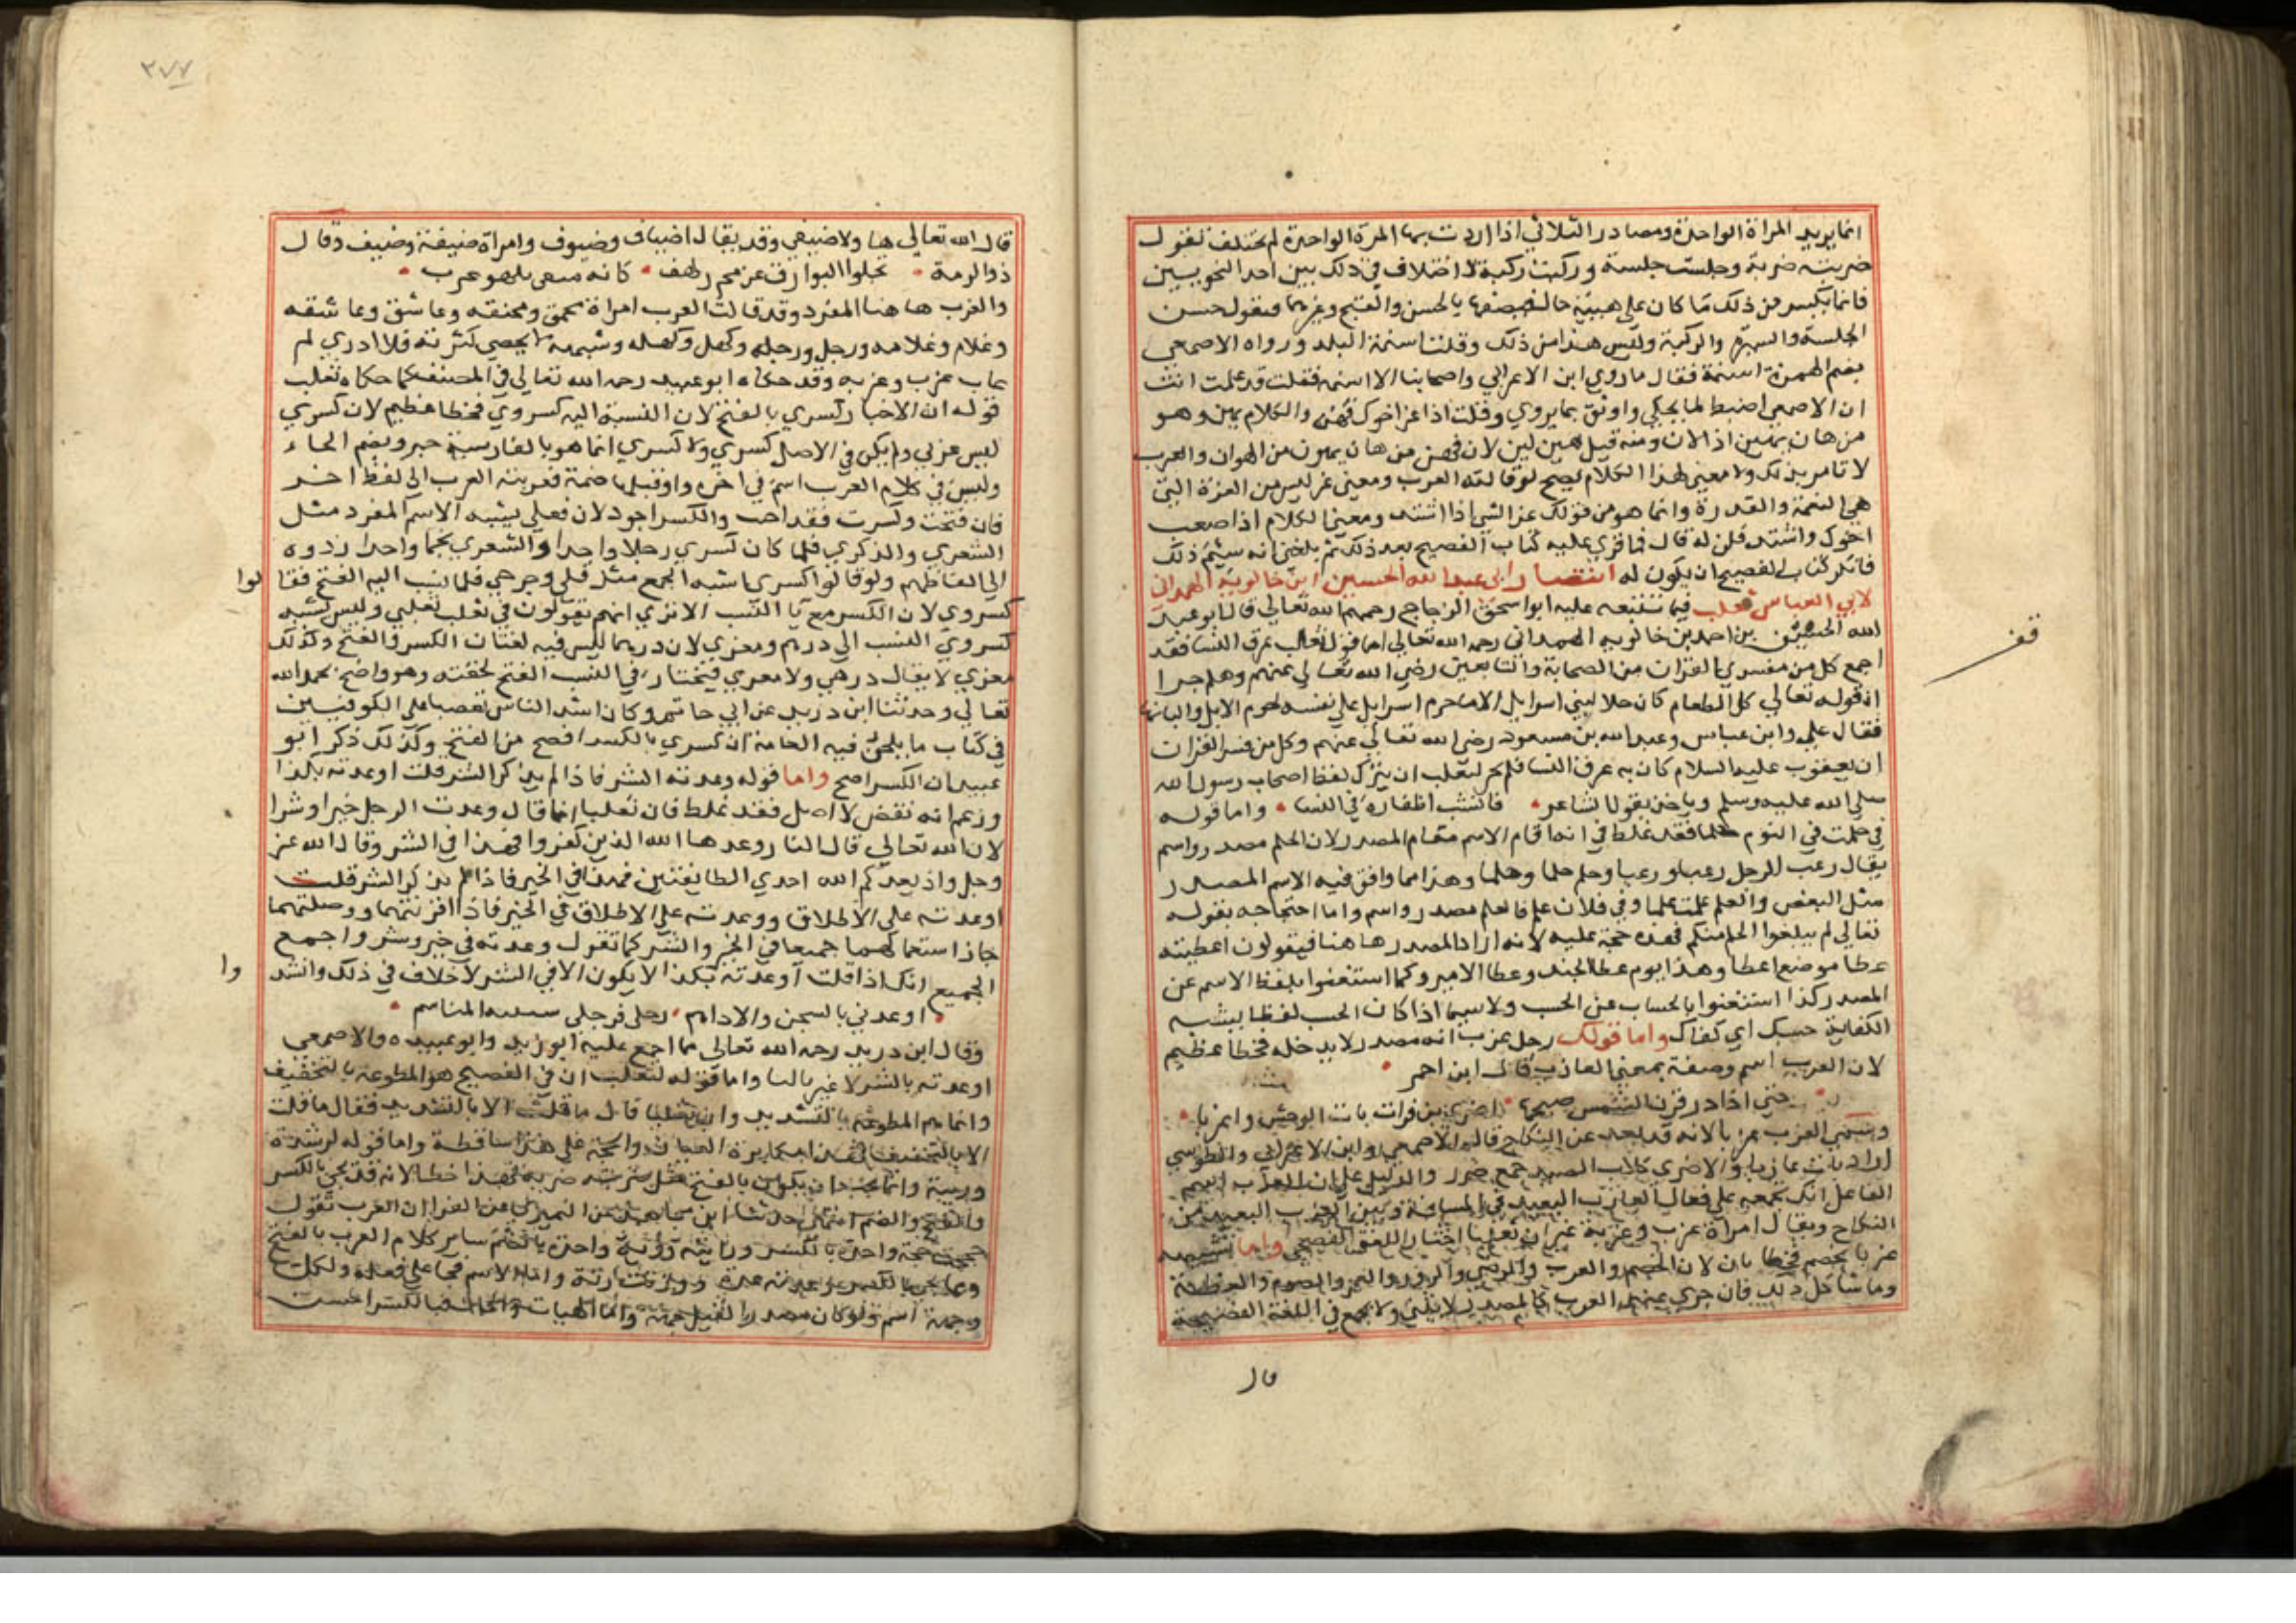 انما يريد المراة الواحدة ومصادر الثلاثي اذا اردت بها المرة الواحدة لم تختلف تقول
ضربته ضربة وجلست جلسة وركبت ركبة لا اختلاف في ذلك بين احد النحويين
فانما يكسر من ذلك ما كان على هيئة حال فيصفها بالحسن والقبح وغيرهما فيقول حسن
الجلسة والسيرة والركبة وليس هذا من ذلك وقلت اسنمة البلد ورواه الاصمعي
بضم الهمزة اسنمة فقال ما روي ابن الاعرابي واصحابنا الا اسنمة فقلت قد علمت انت
ان الاصمعي اضبط لما يحكي واوثق بما يروي وقلت اذا عز اخوك فهن والكلام يهن وهو
من هان يهين اذا لان ومنه قيل هين لين لان فهن من هان يهون من الهوان والعرب
لا تامر بذلك ولا معنى لهذا الكلام يصح لو قالته العرب ومعنى عز ليس من العزة التي
هي النعمة والقدرة وانما هو من قولك عز الشي اذا اشتد ومعنى الكلام اذا صعب
اخوك واشتد فلن له قال فما قري عليه كتاب الفصيح بعد ذلك ثم بلغني انه سئم ذلك
فانكر كتاب الفصيح ان يكون له انتصار ابي عبد الله الحسين ابن خالويه الهمداني
لابي العباس ثعلب فيما تتبعه عليه ابو اسحق الزجاج رحمهم الله تعالي قال ابو عبد
الله الحسين بن احمد بن خالويه الهمداني رحمه الله تعالي اما قول ثعلب عرق النسا فقد
اجمع كل من مفسري القران من الصحابة والتابعين رضي الله تعالي عنهم وهلم جرا
ان قوله تعالي كل الطعام كان حلا لبني اسرايل الا ما حرم اسرايل علي نفسه لحوم الابل والبانها
فقال علي وابن عباس وعبد الله بن مسعود رضي الله تعالي عنهم وكل من فسر القران
ان يعقوب عليه السلام كان به عرق النسا فلم يجز لثعلب ان يترك لفظ اصحاب رسول الله
صلي الله عليه وسلم وياخذ بقول الشاعر • فانشب اظفاره في النسا • واما قوله
في حلمت في النوم حلما فقد غلط في انه اقام الاسم مقام المصدر لان الحلم مصدر واسم
يقال رعب الرجل رعبا ورعبا وحلم حلما وحلما وهذا مما وافق فيه الاسم المصدر
مثل البغض والعلم علمت علما وفي فلان علم فالعلم مصدر واسم واما احتجاجه بقوله
تعالي لم يبلغوا الحلم منكم فهذه حجة عليه لانه اراد المصدر هاهنا فيقولون اعطيته
عطا موضع اعطا وهذا يوم عطا الجند وعطا الامير وكما استغنوا بلفظ الاسم عن
المصدر كذا استغنوا بالحساب عن الحسب ولا سيما اذا كان الحسب لفظا يشبه
الكفاية حسبك اي كفاك واما قولك رجل عزب انه مصدر لا يدخله فخطا عظيم
لان العزب اسم وصفة بمعنى العازب قال ابن احمر •
حتي اذا ذر قرن الشمس صبحها • اضري بن فران بات الوحش والعزبا •
وسمي العزب عزبا لانه قد بعد عن النكاح قاله الاصمعي وابن الاعرابي والطوسي
اراد بات عازبا والاضري كلاب الصيد جمع ضرو والدليل على ان العزب اسم
الفاعل انك تجمعه علي فعال العازب البعيد في المسافة وبين العزب البعيد من
النكاح ويقال امراة عزب وعزبة غير ان ثعلبا اختار اللغة الفصحي واما تشبيهه
عزبا بخصم فخطا بان لان الخصم والعرب والرضي والزور والنجم والصوم والفطر
وما شاكل ذلك فان جري عندهم العرب كالمصدر لا يثنى ولا يجمع في اللغة الفصيحة
قال
قف
٢٧٧
قال الله تعالي هيا ولا ضيفي وقد يقال اضياف وضيوف وامراة ضيفة وضيف وقال
ذو الرمة • تجلوا البوارق عن مجرمز لهق • كانه متقبي يلمق عزب •
والعزب هاهنا المفرد وقد قالت العرب امراة محمق ومحمقة وعاشق وعاشقه
وغلام وغلامه ورجل ورجله وكهل وكهله وشيخ ما لا يحصي كثرته فلا ادري لم
عاب عزب وعزبه وقد حكاه ابو عبيد رحمه الله تعالي في المصنف كما حكاه ثعلب
قوله ان الاختيار كسري بالفتح لان النسبة اليه كسروي فخطا عظيم لان كسري
ليس عربي ولم يكن في الاصل كسري ولا كسري انما هو بالفارسية خسرو بضم الخاء
وليس في كلام العرب اسم في اخره واو قبلها ضمة فعربته العرب الي لفظ اخر
فان فتحت وكسرت فقد احسنت والكسر اجود لان فعلي يشبه الاسم المفرد مثل
الشعري والذكري فلما كان كسري رجلا واحدا والشعري نجما واحدا ردوه
الي الفاظهم ولو قالوا كسري اشبه الجمع مثل قتلي وجرحي فلما نسب اليه الفتح فقا لوا
كسروي لان الكسر مع يا النسب الا تري انهم يقولون في تغلب تغلبي وليس يشبه
كسروي النسب الي درهم ومعزي لان درهما ليس فيه لغتان الكسر والفتح وكذلك
معزي لا يقال درهمي ولا معزي فيختار في النسب الفتح لخفته وهو واضح بحمد الله
تعالي وحدثنا ابن دريد عن ابي حاتم وكان اشد الناس تعصبا علي الكوفيين
في كتاب ما يلحن فيه العامة ان كسري بالكسر افصح من الفتح وكذلك ذكر ابو
عبيد ان الكسر اصح واما قوله وعدته الشر فاذا لم يذكر الشر قلت اوعدته بكذا
وزعم انه نقض لاصل فقد غلط فان ثعلبا انما قال وعدت الرجل خيرا وشرا
لان الله تعالي قال النار وعدها الله الذين كفروا فهذا في الشر وقال الله عز
وجل واذ يعدكم الله احدي الطايفتين فهذا في الخير فاذا لم يذكر الشر قلت
اوعدته علي الاطلاق ووعدته علي الاطلاق في الخير فاذا اقرنتهما ووصلتهما
جاز استعمالهما جميعا في الخير والشر كما تقول وعدته في خير وشر واجمع
الجميع انك اذا قلت اوعدته بكذا لا يكون الا في الشر لا خلاف في ذلك وانشد وا
• اوعدني بالسجن والاداهم • رجلي فرجلي شثنة المناسم •
وقال ابن دريد رحمه الله تعالي مما اجمع عليه ابو زيد وابو عبيده والاصمعي
اوعدته بالشر لا غير بالبا واما قوله لثعلب ان في الفصيح هو المطوعة بالتخفيف
وانما هم المطوعة بالتشديد وان ثعلبا قال ما قلت الا بالتشديد فقال ما قلت
الا بالتخفيف فهذا مكابرة العيان والحجة علي هذا ساقطة واما قوله لرشدة
وزنية وانما يجب ان يكون بالفتح مثل ضربته ضربة فهذا خطا لانه قد يجي بالكسر
والفتح والضم حدثنا ابن مجاهد عن السمري عن الفرا ان العرب تقول
حججت حجة واحدة بالكسر ورايته رؤية واحدة بالضم ساير كلام العرب بالفتح
وجمعه اسم ولو كان مصدرا لقيل وانما الهيات والحالات فبالكسر احسن